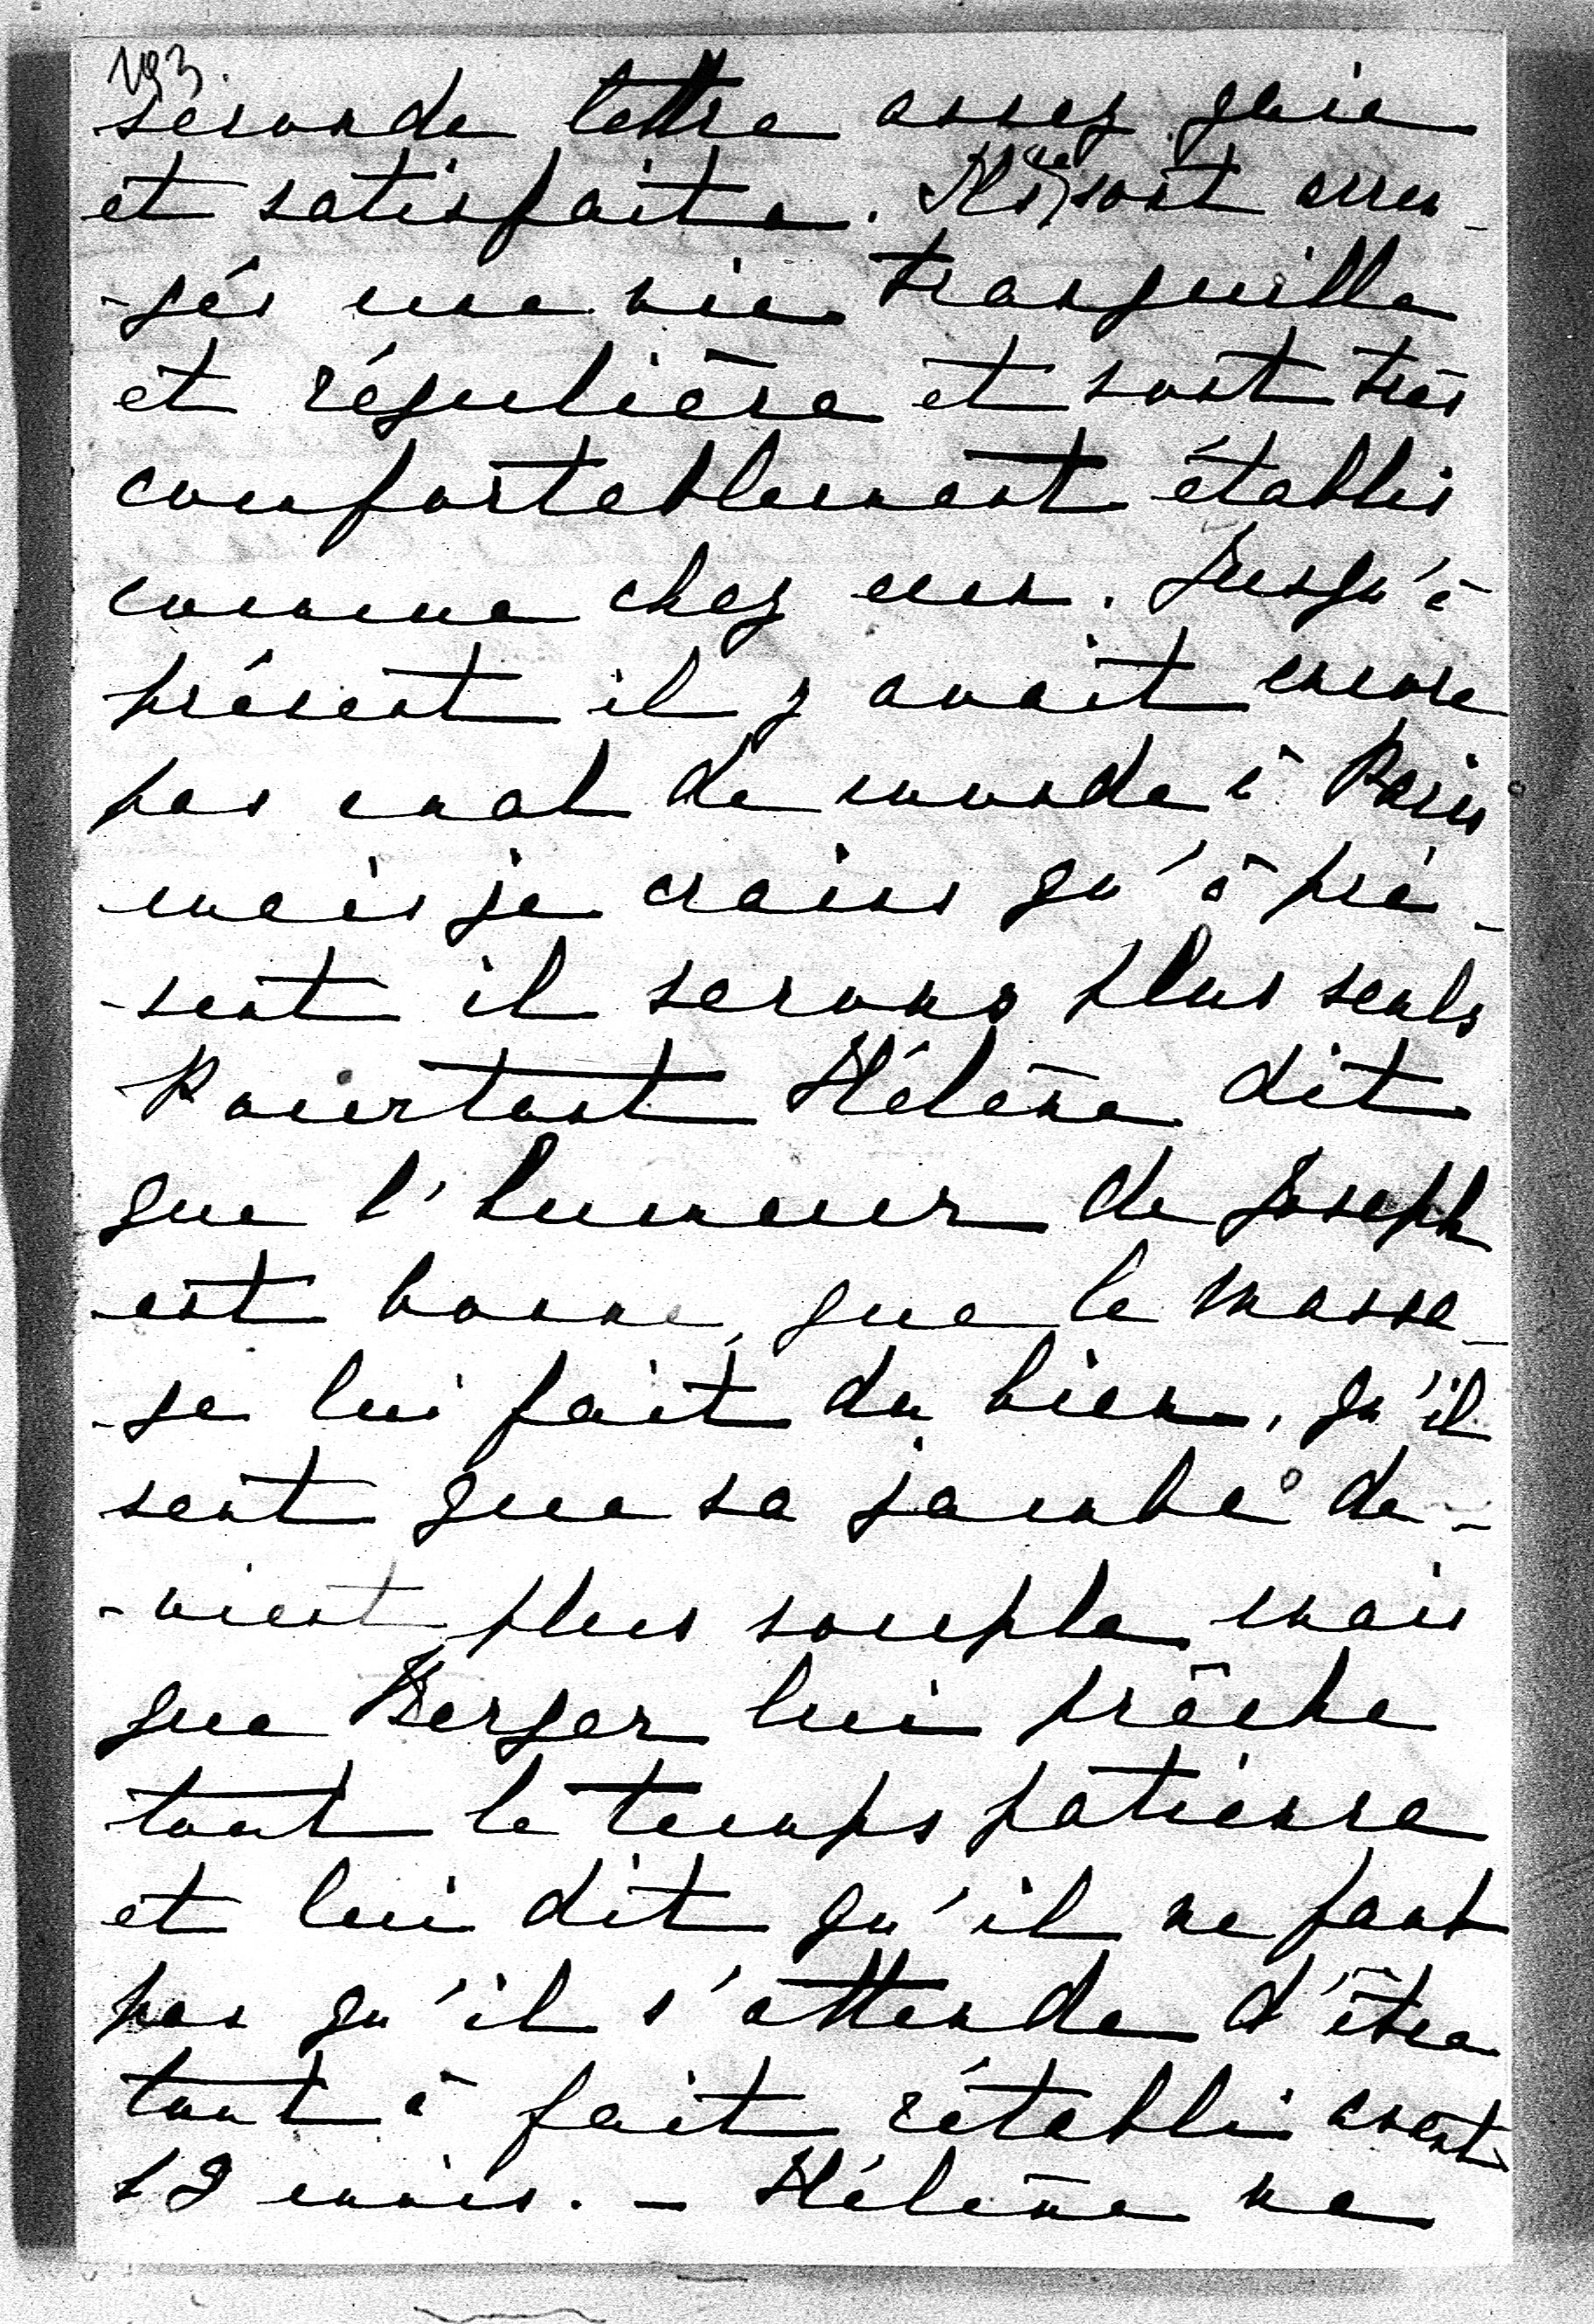 193.
seconde lettre assez gaie
et satisfaite. Ils se sont arran-
-gés une vie tranquille
et régulière et sont très
confortablement établis
comme chez eux. Jusqu'à
présent il y avait encore
pas mal de monde à Paris
mais je crains qu'à pré-
-sent il serons plus seuls
Pourtant Hélène dit
que l'humeur de Joseph
est bonne, que le massa-
-ge lui fait du bien, qu'il
sent que sa jambe de-
-vient plus souple mais
que Berger lui prêche
tout le temps patience
et lui dit qu'il ne faut
pas qu'il s'attende d'être
tout à fait rétabli avant
18 mois. - Hélène me